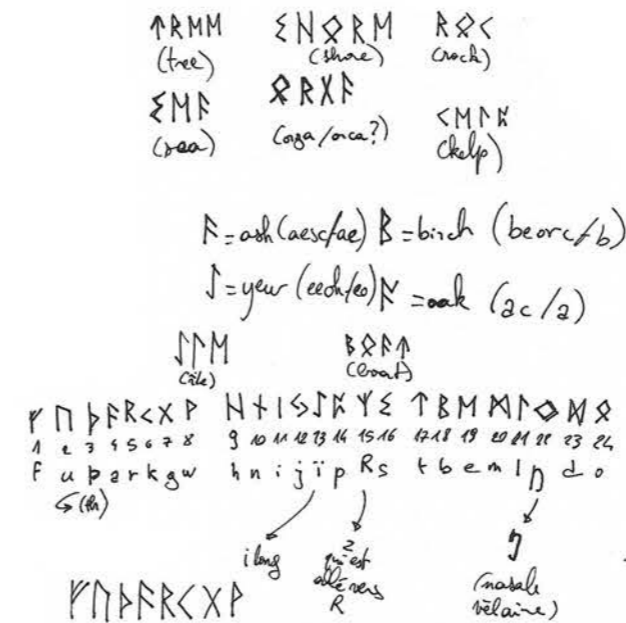 ᛏᚱᛖᛖ ᛊᚺᛟᚱᛖ ᚱᛟᚲ
(tree) (shore) (rock)
ᛊᛖᚨ ᛟᚱᚷᚨ ᚲᛖᛚᛈ
(sea) (orga/orca?) (kelp)
ᚨ = ash (aesc/ae) ᛒ = birch (beorc/b)
ᛇ = yew (eeoh/eo) ᚩ = oak (ac/a)
ᛇᛚᛖ ᛒᛟᚨᛏ
(île) (boat)
ᚠ ᚢ ᚦ ᚨ ᚱ ᚲ ᚷ ᚹ ᚺ ᚾ ᛁ ᛃ ᛇ ᛈ ᛉ ᛊ ᛏ ᛒ ᛖ ᛗ ᛚ ᛜ ᛞ ᛟ
1 2 3 4 5 6 7 8 9 10 11 12 13 14 15 16 17 18 19 20 21 22 23 24
f u þ a r k g w h n i j ï p R s t b e m l ŋ d o
(th)
i long z qui est allé vers R ŋ (nasale vélaire)
ᚠᚢᚦᚨᚱᚲᚷᚹ